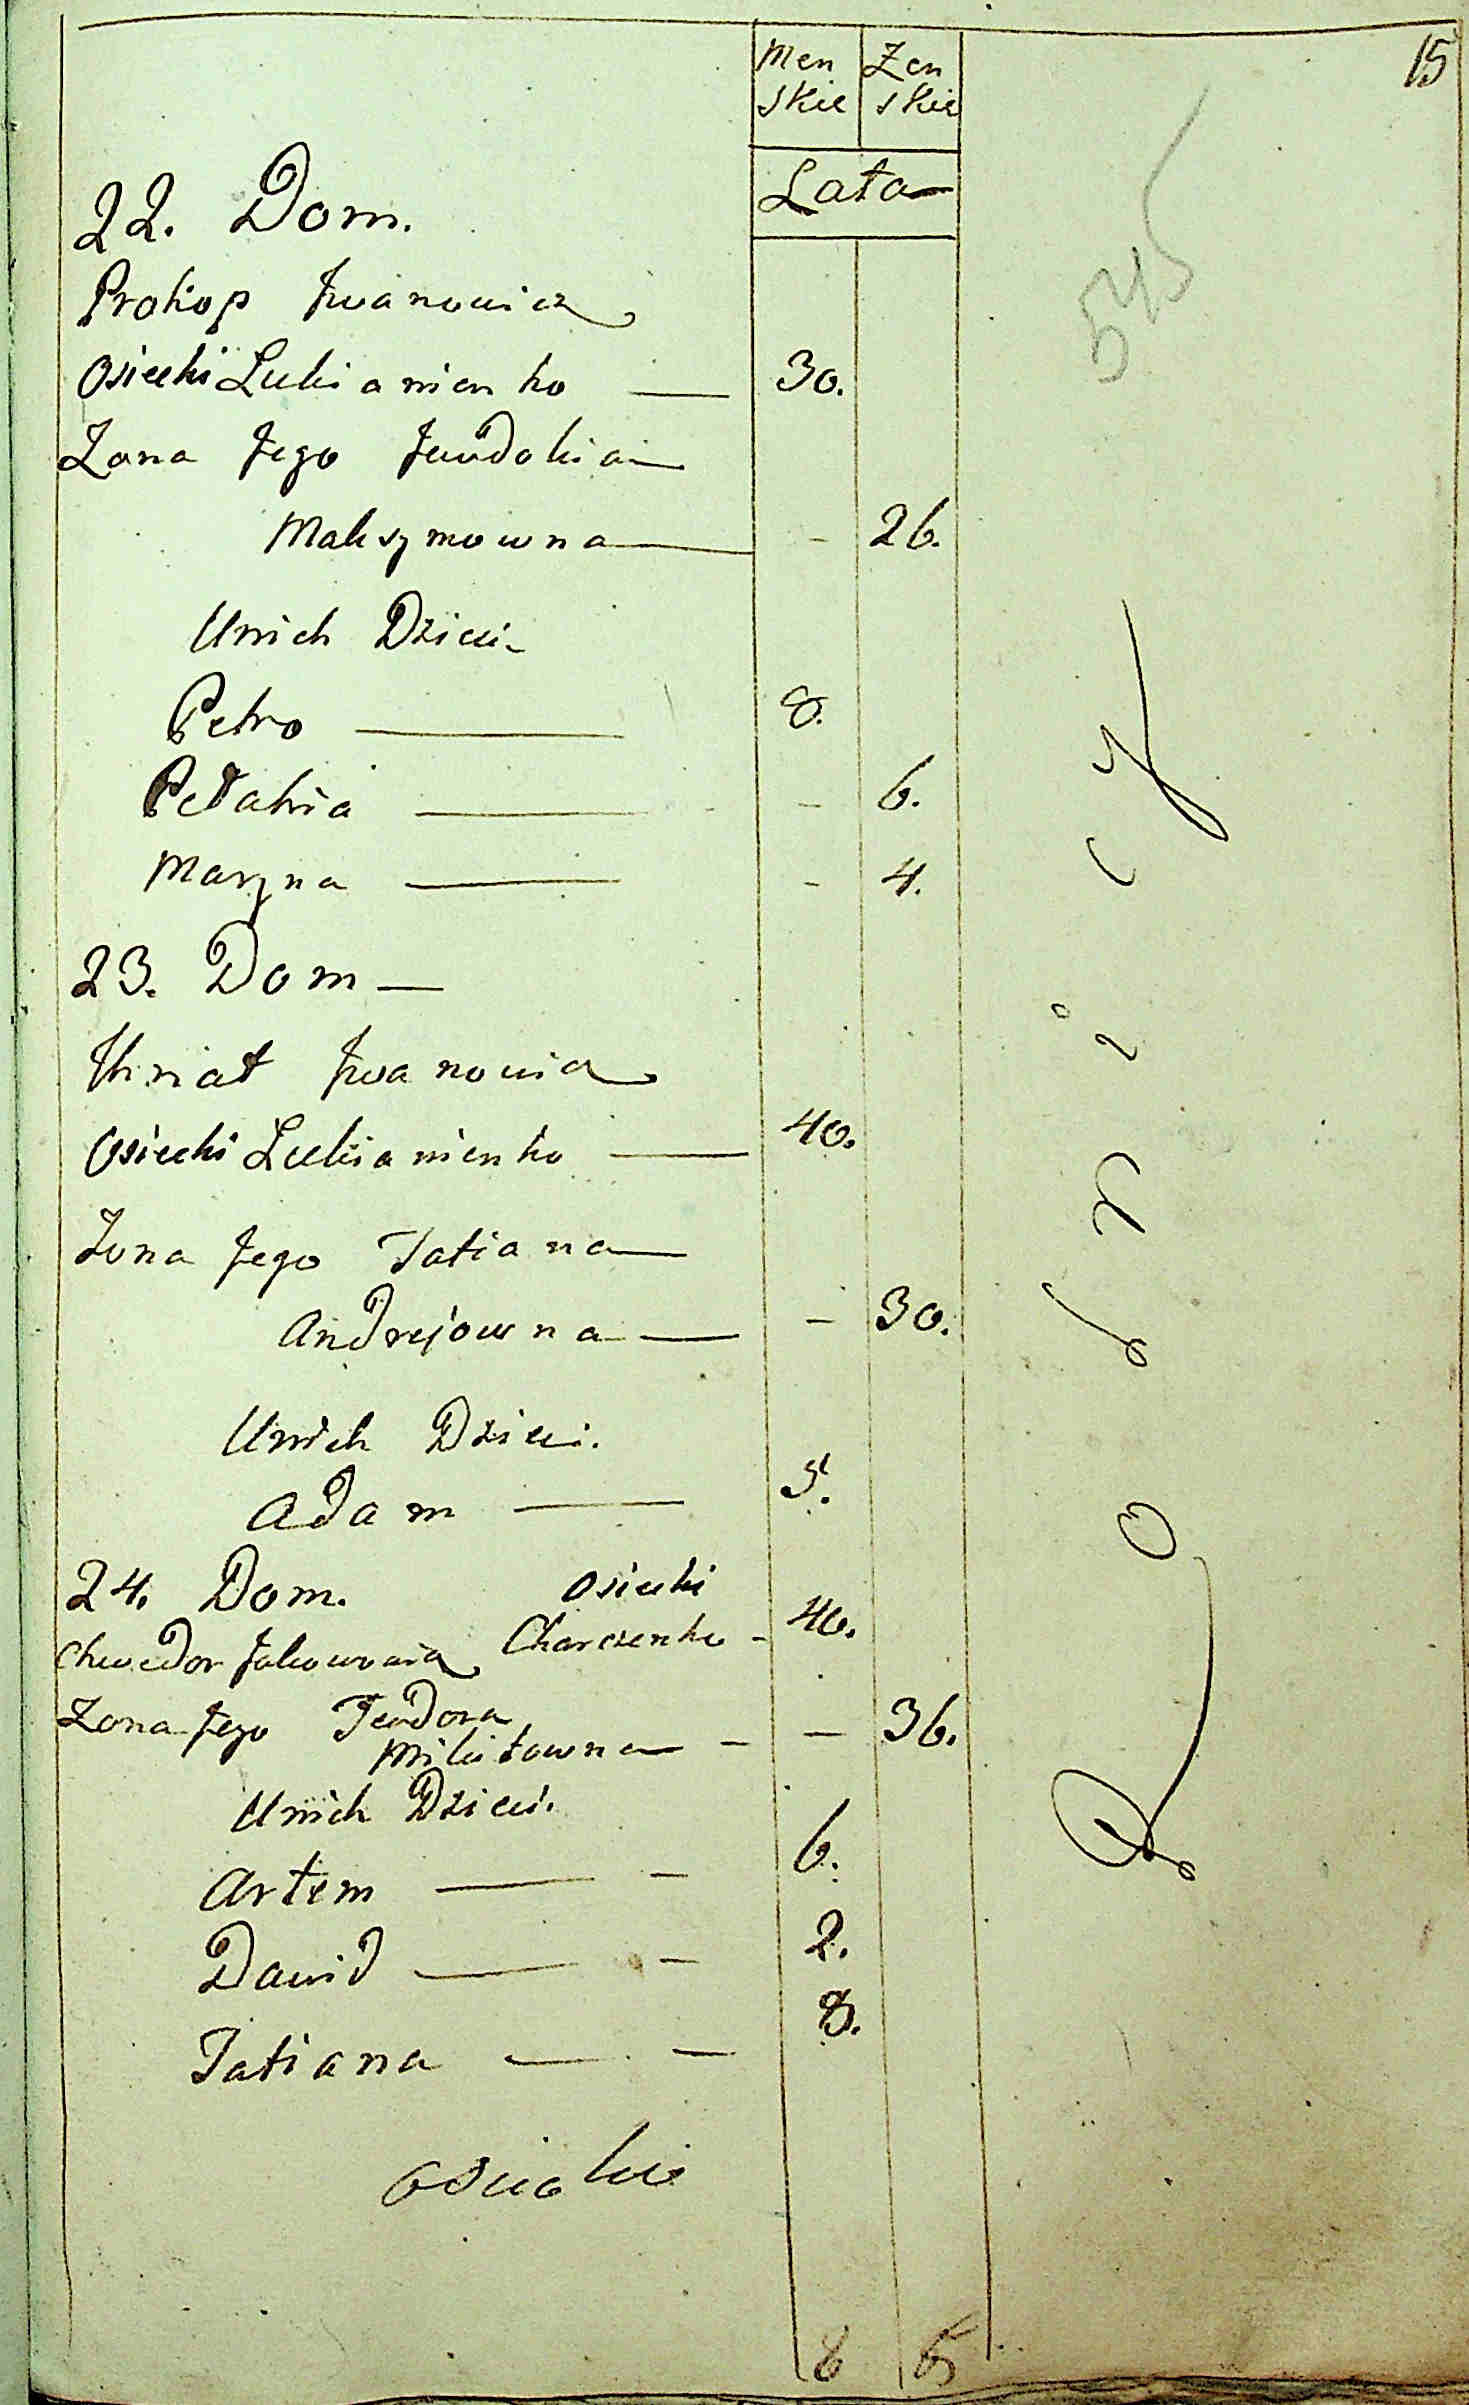 15
Men
skie
Zen
skie
Lata
22. Dom.
545
Prokop Iwanowicz
Osiecki Lukianienko — 30.
Zona Jego Jewdokia
Maksymowna — - 26.
Unich Dzieci
Petro — 8.
Pełahia — - 6.
Maryna — - 4.
23. Dom —
Ihnat Iwanowicz
Osiecki Lukianienko — 40.
Zona Jego Tatiana
Andrejowna — - 30.
Unich Dzieci.
Adam — 5.
24. Dom. Osiecki
Chwedor Jakowowicz Charczenko - 40.
Zona Jego Teodora
Mikitowna - - 36.
Unich Dzieci.
Artem — - 6.
Dawid — - 2.
Tatiana — - 8.
6 5